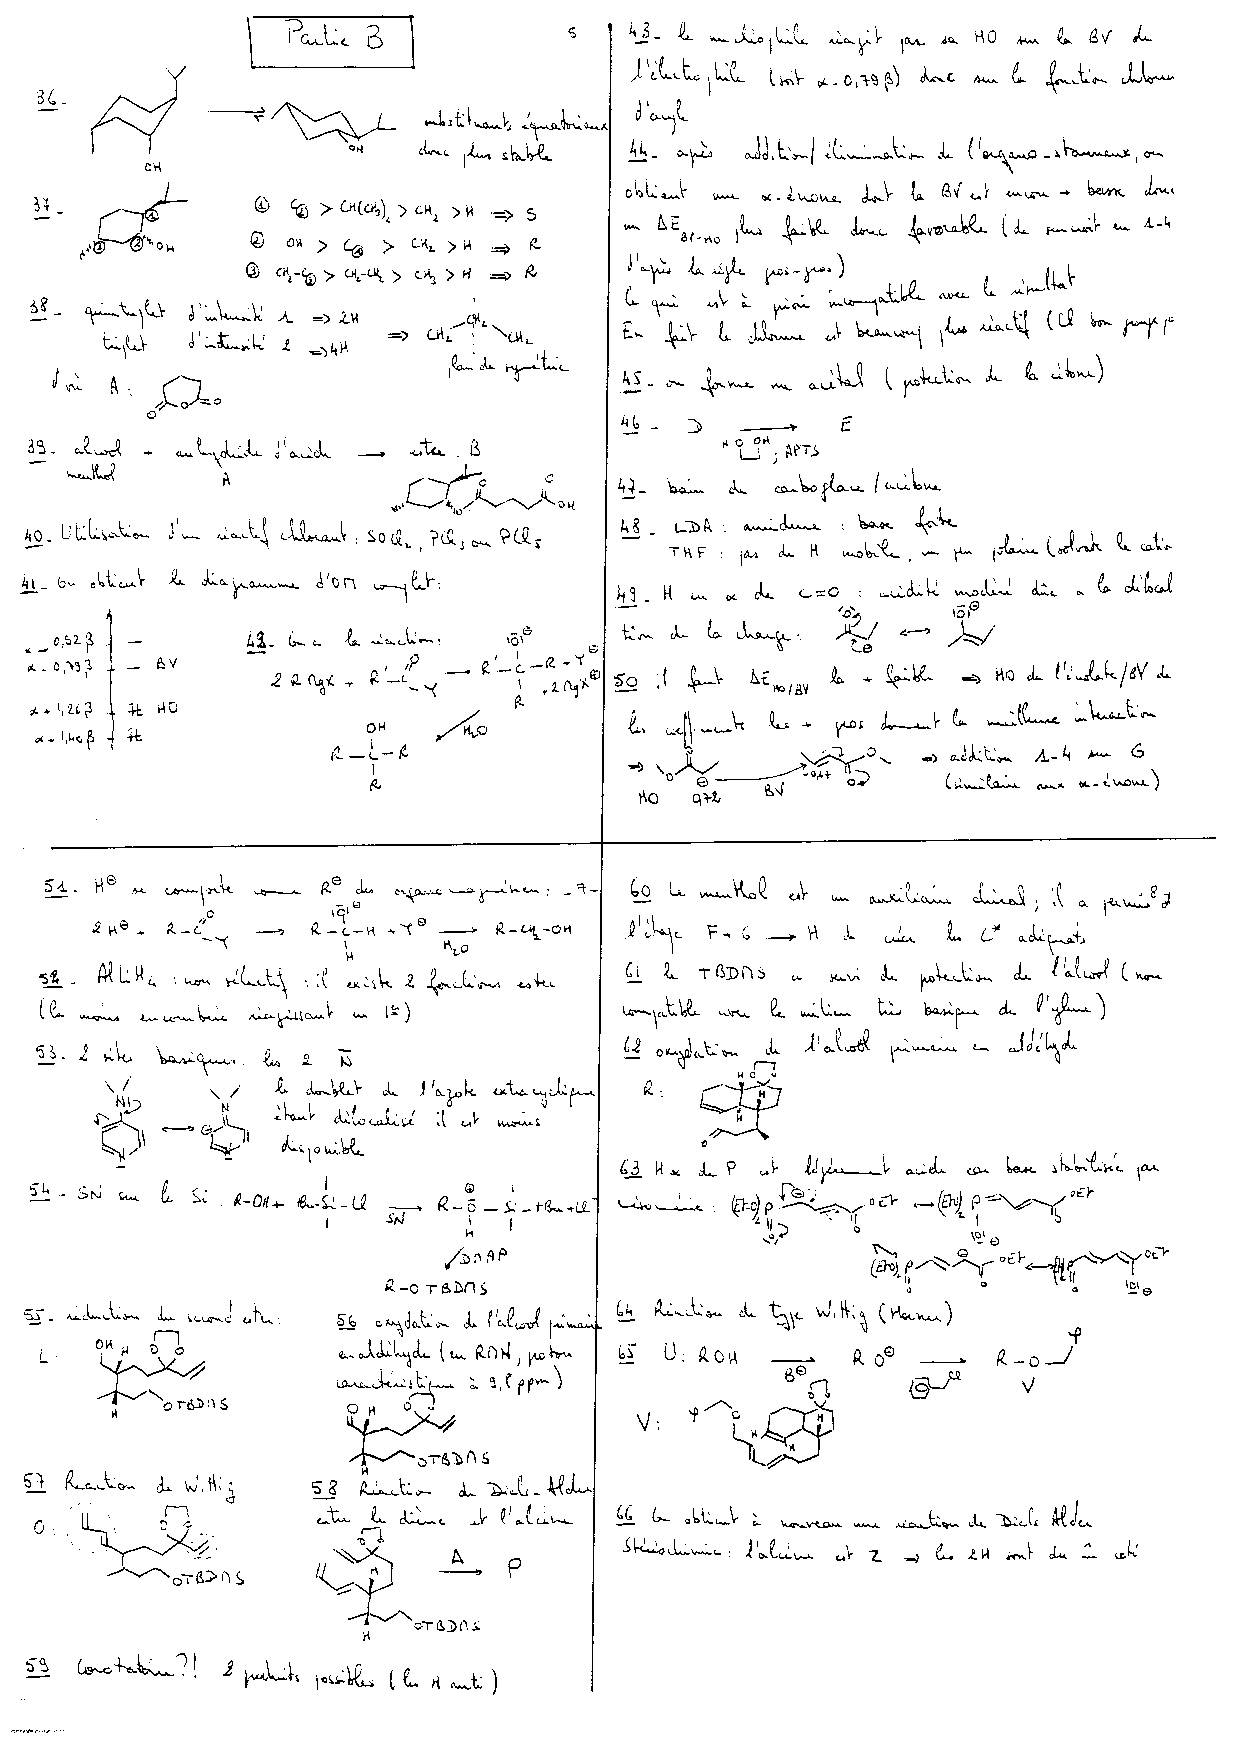 Partie B
5
36-
OH
OH
substituants équatoriaux
donc plus stable
37-
OH
① C② > CH(CH3)2 > CH2 > H ⇒ S
② OH > C① > CH2 > H ⇒ R
③ CH2-C② > CH2-CH2 > CH3 > H ⇒ R
38- quintuplet d'intensité 1 ⇒ 2H
triplet d'intensité 2 ⇒ 4H
⇒ CH2 CH2 CH2
plan de symétrie
d'où A:
39- alcool + anhydride d'acide → ester B
menthol A
OH
40- Utilisation d'un réactif chlorant: SOCl2, PCl3 ou PCl5
41- On obtient le diagramme d'OM complet:
α - 0,52β
α - 0,79β BV
α + 1,26β HO
α + 1,40β
42- On a la réaction:
2 RMgX + R'-C-Y → R'-C-R + Y⊖ + 2MgX⊕
H2O
OH
R-C-R
R
43- le nucléophile réagit par sa HO sur la BV de
l'électrophile (soit α-0,79β) donc sur la fonction chlorure
d'acyle
44- après addition/élimination de l'organo-stanneux, on
obtient une α-énone dont la BV est encore + basse donc
un ΔE BV-HO plus faible donc favorable (de surcroit en 1-4
d'après la règle gros-gros)
ce qui est à priori incompatible avec le résultat
En fait le chlorure est beaucoup plus réactif (Cl bon
45- on forme un acétal (protection de la cétone)
46- D → E
HO OH ; APTS
47- bain de carboglace/acétone
48- LDA: amidure: base forte
THF: pas de H mobile, un peu polaire (solvate le catio
49- H en α de C=O: acidité modéré dûe a la délocal
tion de la charge:
50 il faut ΔE HO/BV le + faible ⇒ HO de l'énolate/BV de
les coefficients les + gros donnent la meilleure interaction
⇒ addition 1-4 sur G
(similaire aux α-énone)
HO 0,72 BV 0,47
51- H⊖ se comporte comme R⊖ des organomagnésien: -7-
2H⊖ + R-C-Y → R-C-H + Y⊖ → R-CH2-OH
H2O
52- AlLiH4: non sélectif: il existe 2 fonctions ester
(la moins encombrée réagissant en 1er)
53- 2 sites basiques: les 2 N
le doublet de l'azote extracyclique
étant délocalisé il est moins
disponible
54- SN sur le Si: R-OH + tBu-Si-Cl → R-O-Si-tBu + Cl⊖
SN
H
DMAP
R-OTBDMS
55- réduction du second ester:
L:
OH H O O
OTBDMS
H
56 oxydation de l'alcool primaire
en aldéhyde (en RMN, proton
caractéristique à 9,8 ppm)
OTBDMS
H
57 Réaction de Wittig
O:
OTBDMS
58 Réaction de Diels-Alder
entre le diène et l'alcène
Δ
P
OTBDMS
H
59 Constatation?! 2 produits possibles (les H anti)
60 Le menthol est un auxiliaire chiral; il a permis à
8
l'étape F+G → H de créer les C* adéquats
61 le TBDMS a servi de protection de l'alcool (non
compatible avec le milieu très basique de l'ylure)
62 oxydation de l'alcool primaire en aldéhyde
R:
63 Hα de P est légèrement acide car base stabilisée par
mésomérie: (EtO)2P OEt ↔ (EtO)2P OEt
(EtO)2P OEt ↔ OEt
64 Réaction de type Wittig (Horner)
65 U: ROH → RO⊖ → R-O φ
B⊖ Cl V
V: φ
66 On obtient à nouveau une réaction de Diels Alder
Stéréochimie: l'alcène est Z → les 2H sont du m̂ côté